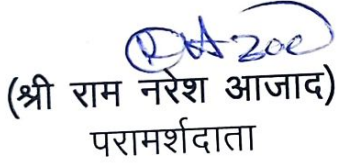 (श्री राम नरेश आजाद)
परामर्शदाता